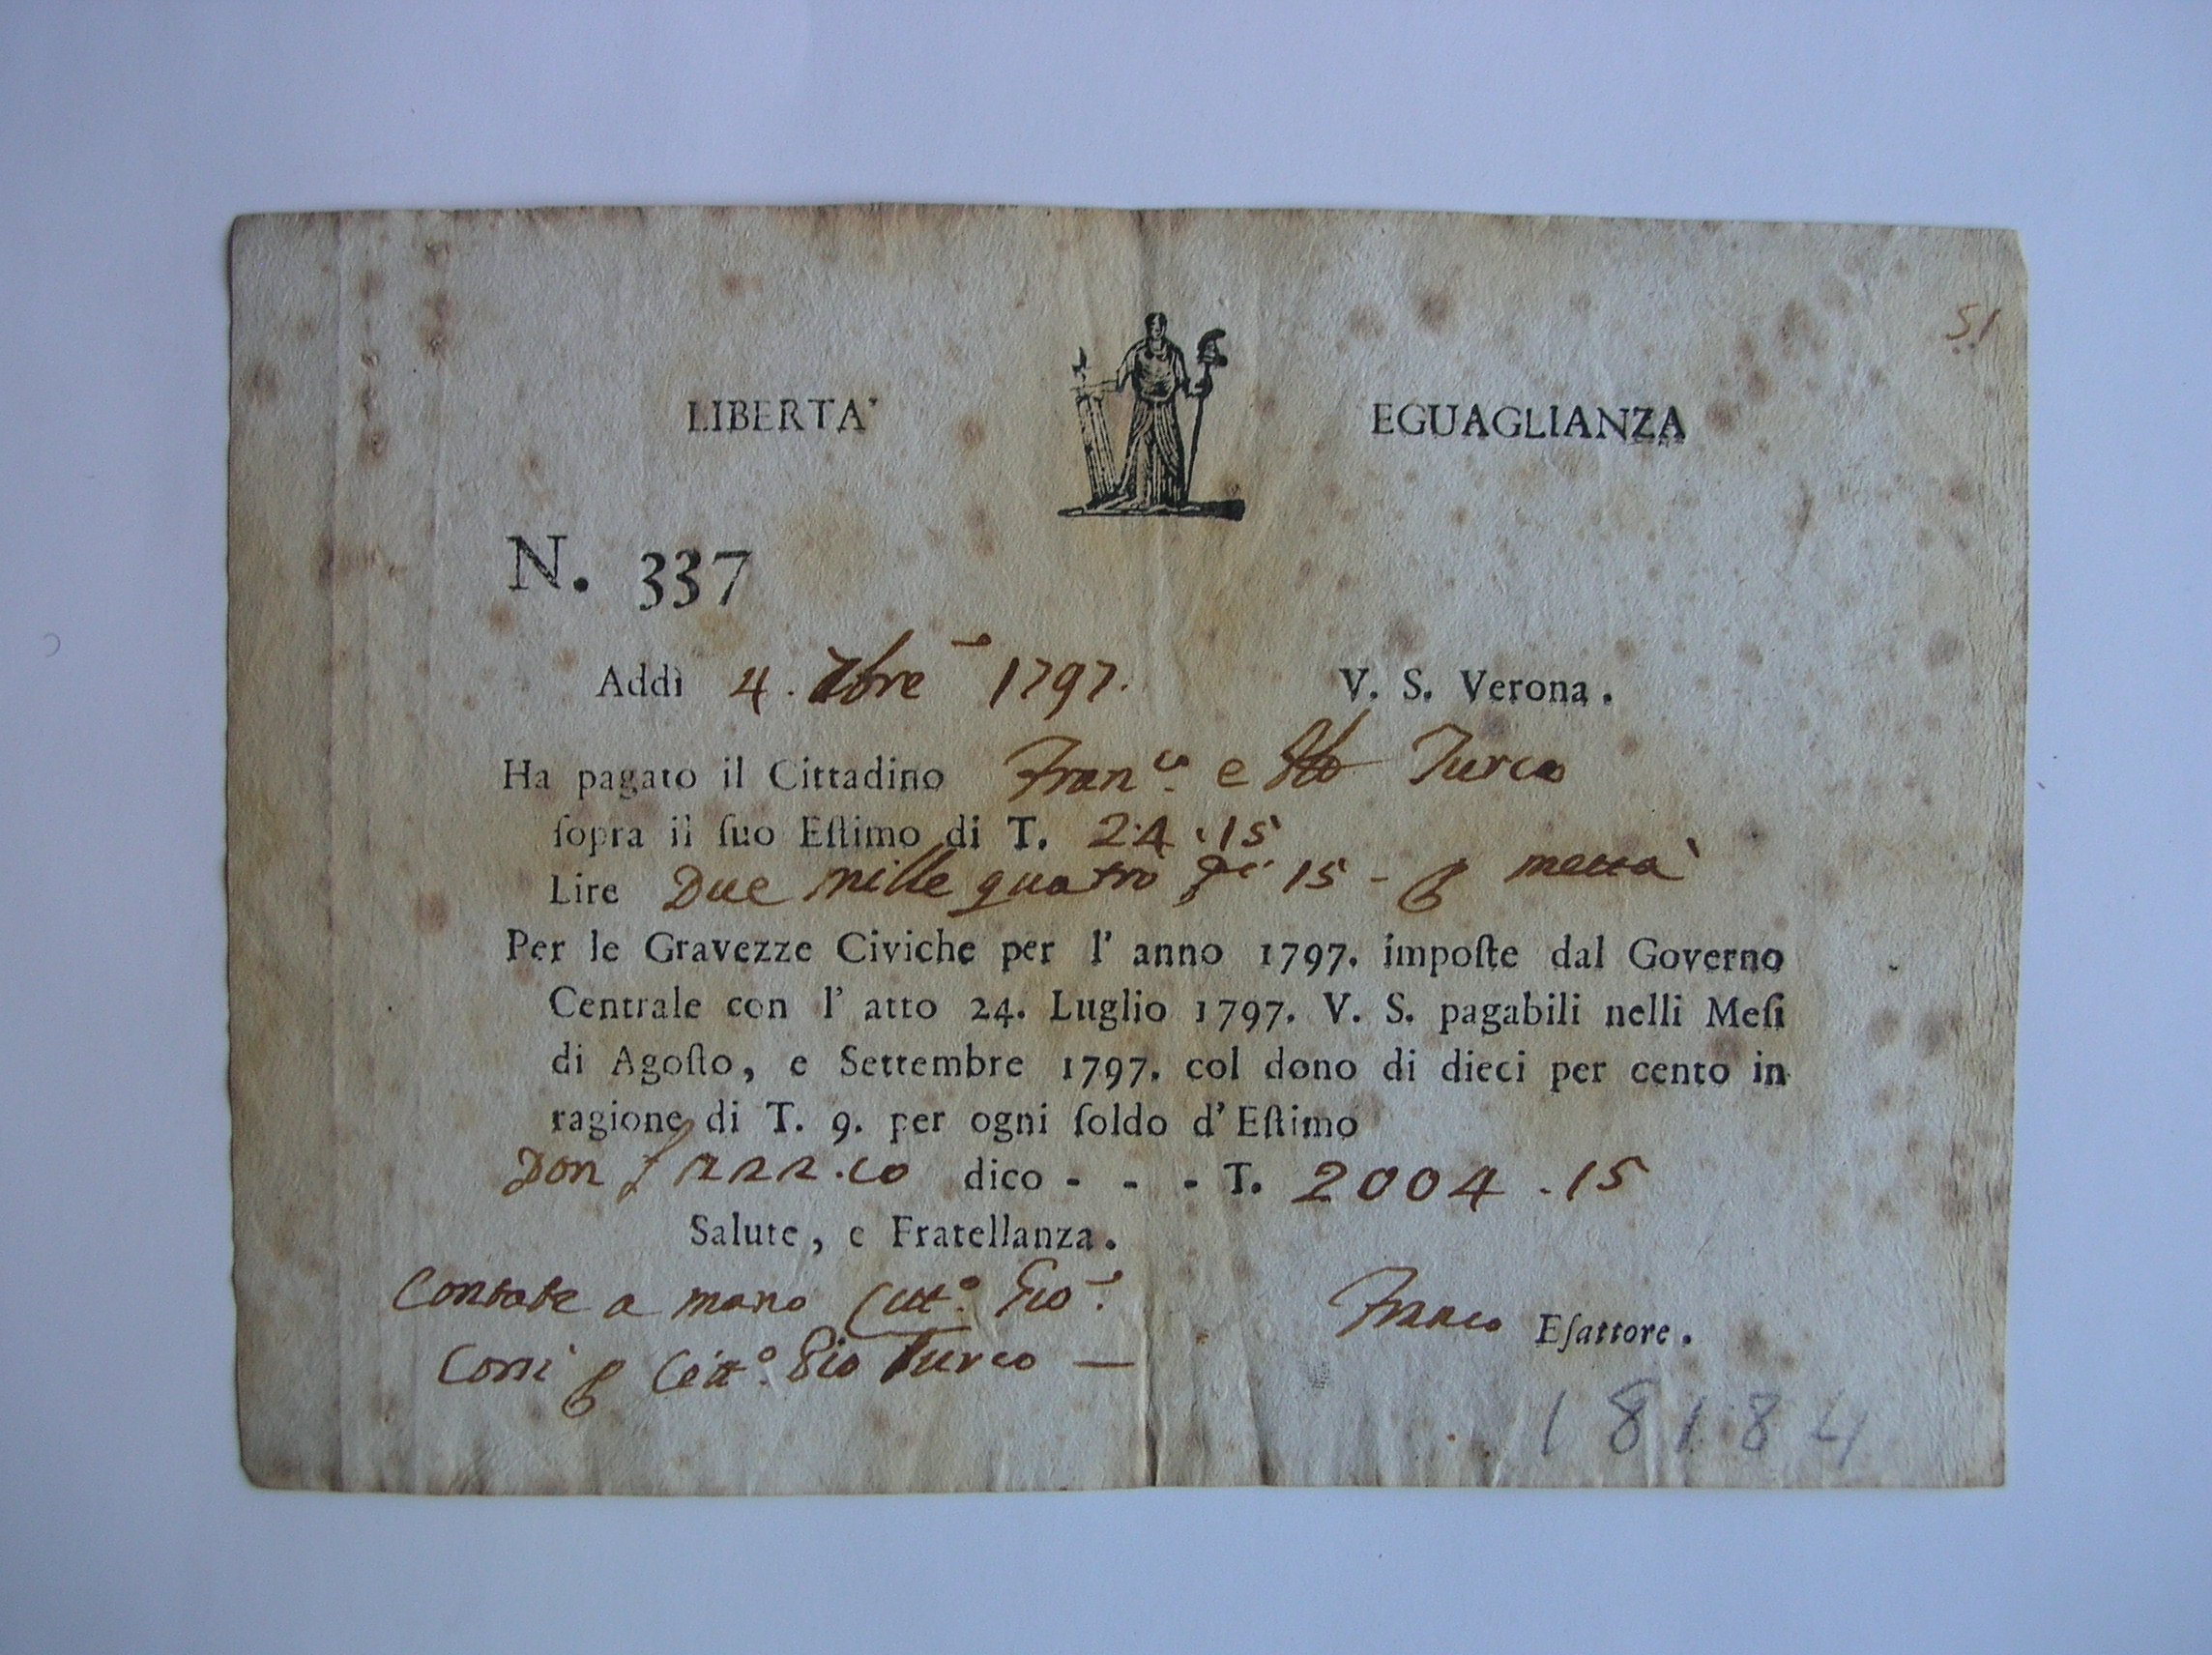 51
LIBERTA' EGUAGLIANZA
N. 337
Addì 4. 7bre 1797. V. S. Verona.
Ha pagato il Cittadino Fran.co e Turco
ſopra il ſuo Eſtimo di T. 24.15
Lire Due mille quatro 15 - mettà
Per le Gravezze Civiche per l' anno 1797. impoſte dal Governo
Centrale con l' atto 24. Luglio 1797. V. S. pagabili nelli Meſi
di Agoſto, e Settembre 1797. col dono di dieci per cento in
ragione di T. 9. per ogni ſoldo d'Eſtimo
Don dico - - - T. 2004.15
Salute, e Fratellanza.
Contate a mano Citt.o Gio.
Citt.o Gio Turco —
Eſattore.
18184